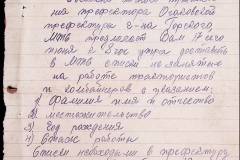 на префектора Осиповской
префектуры г-на Горского
МТБ предлогает Вам 17 его
июня к 8 час утра доставить
в МТБ списки по занятию
на работе трактористов
и комбайнеров с указанием:
1) Фамилия имя и отчество
2) местожительство
3) Год рождения
4) Стаж работы
Списки необходимы в префектуру